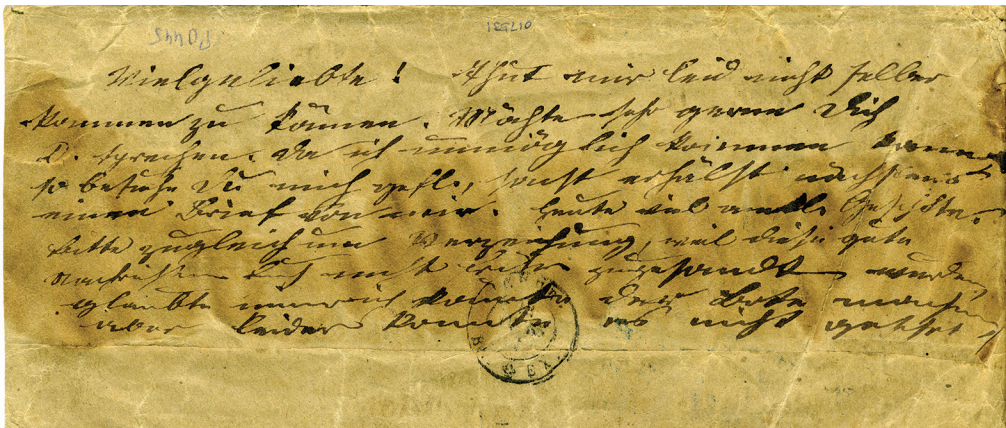 PO445
017531
Vielgeliebte! Thut mir leid nicht selber
kommen zu können. Möchte sehr gerne Dich
D. sprechen. Da ich unmöglich kommen kann
so besuche Du mich gefl., sonst erhälst nächstens
einen Brief von mir. Heute viel Geschäfte.
bitte zugleich um Verzeihung, weil diese gute
Nachrichten nicht zugesandt wurden
glaubte immer ich könnte der Bote machen
aber leider konnte es nicht